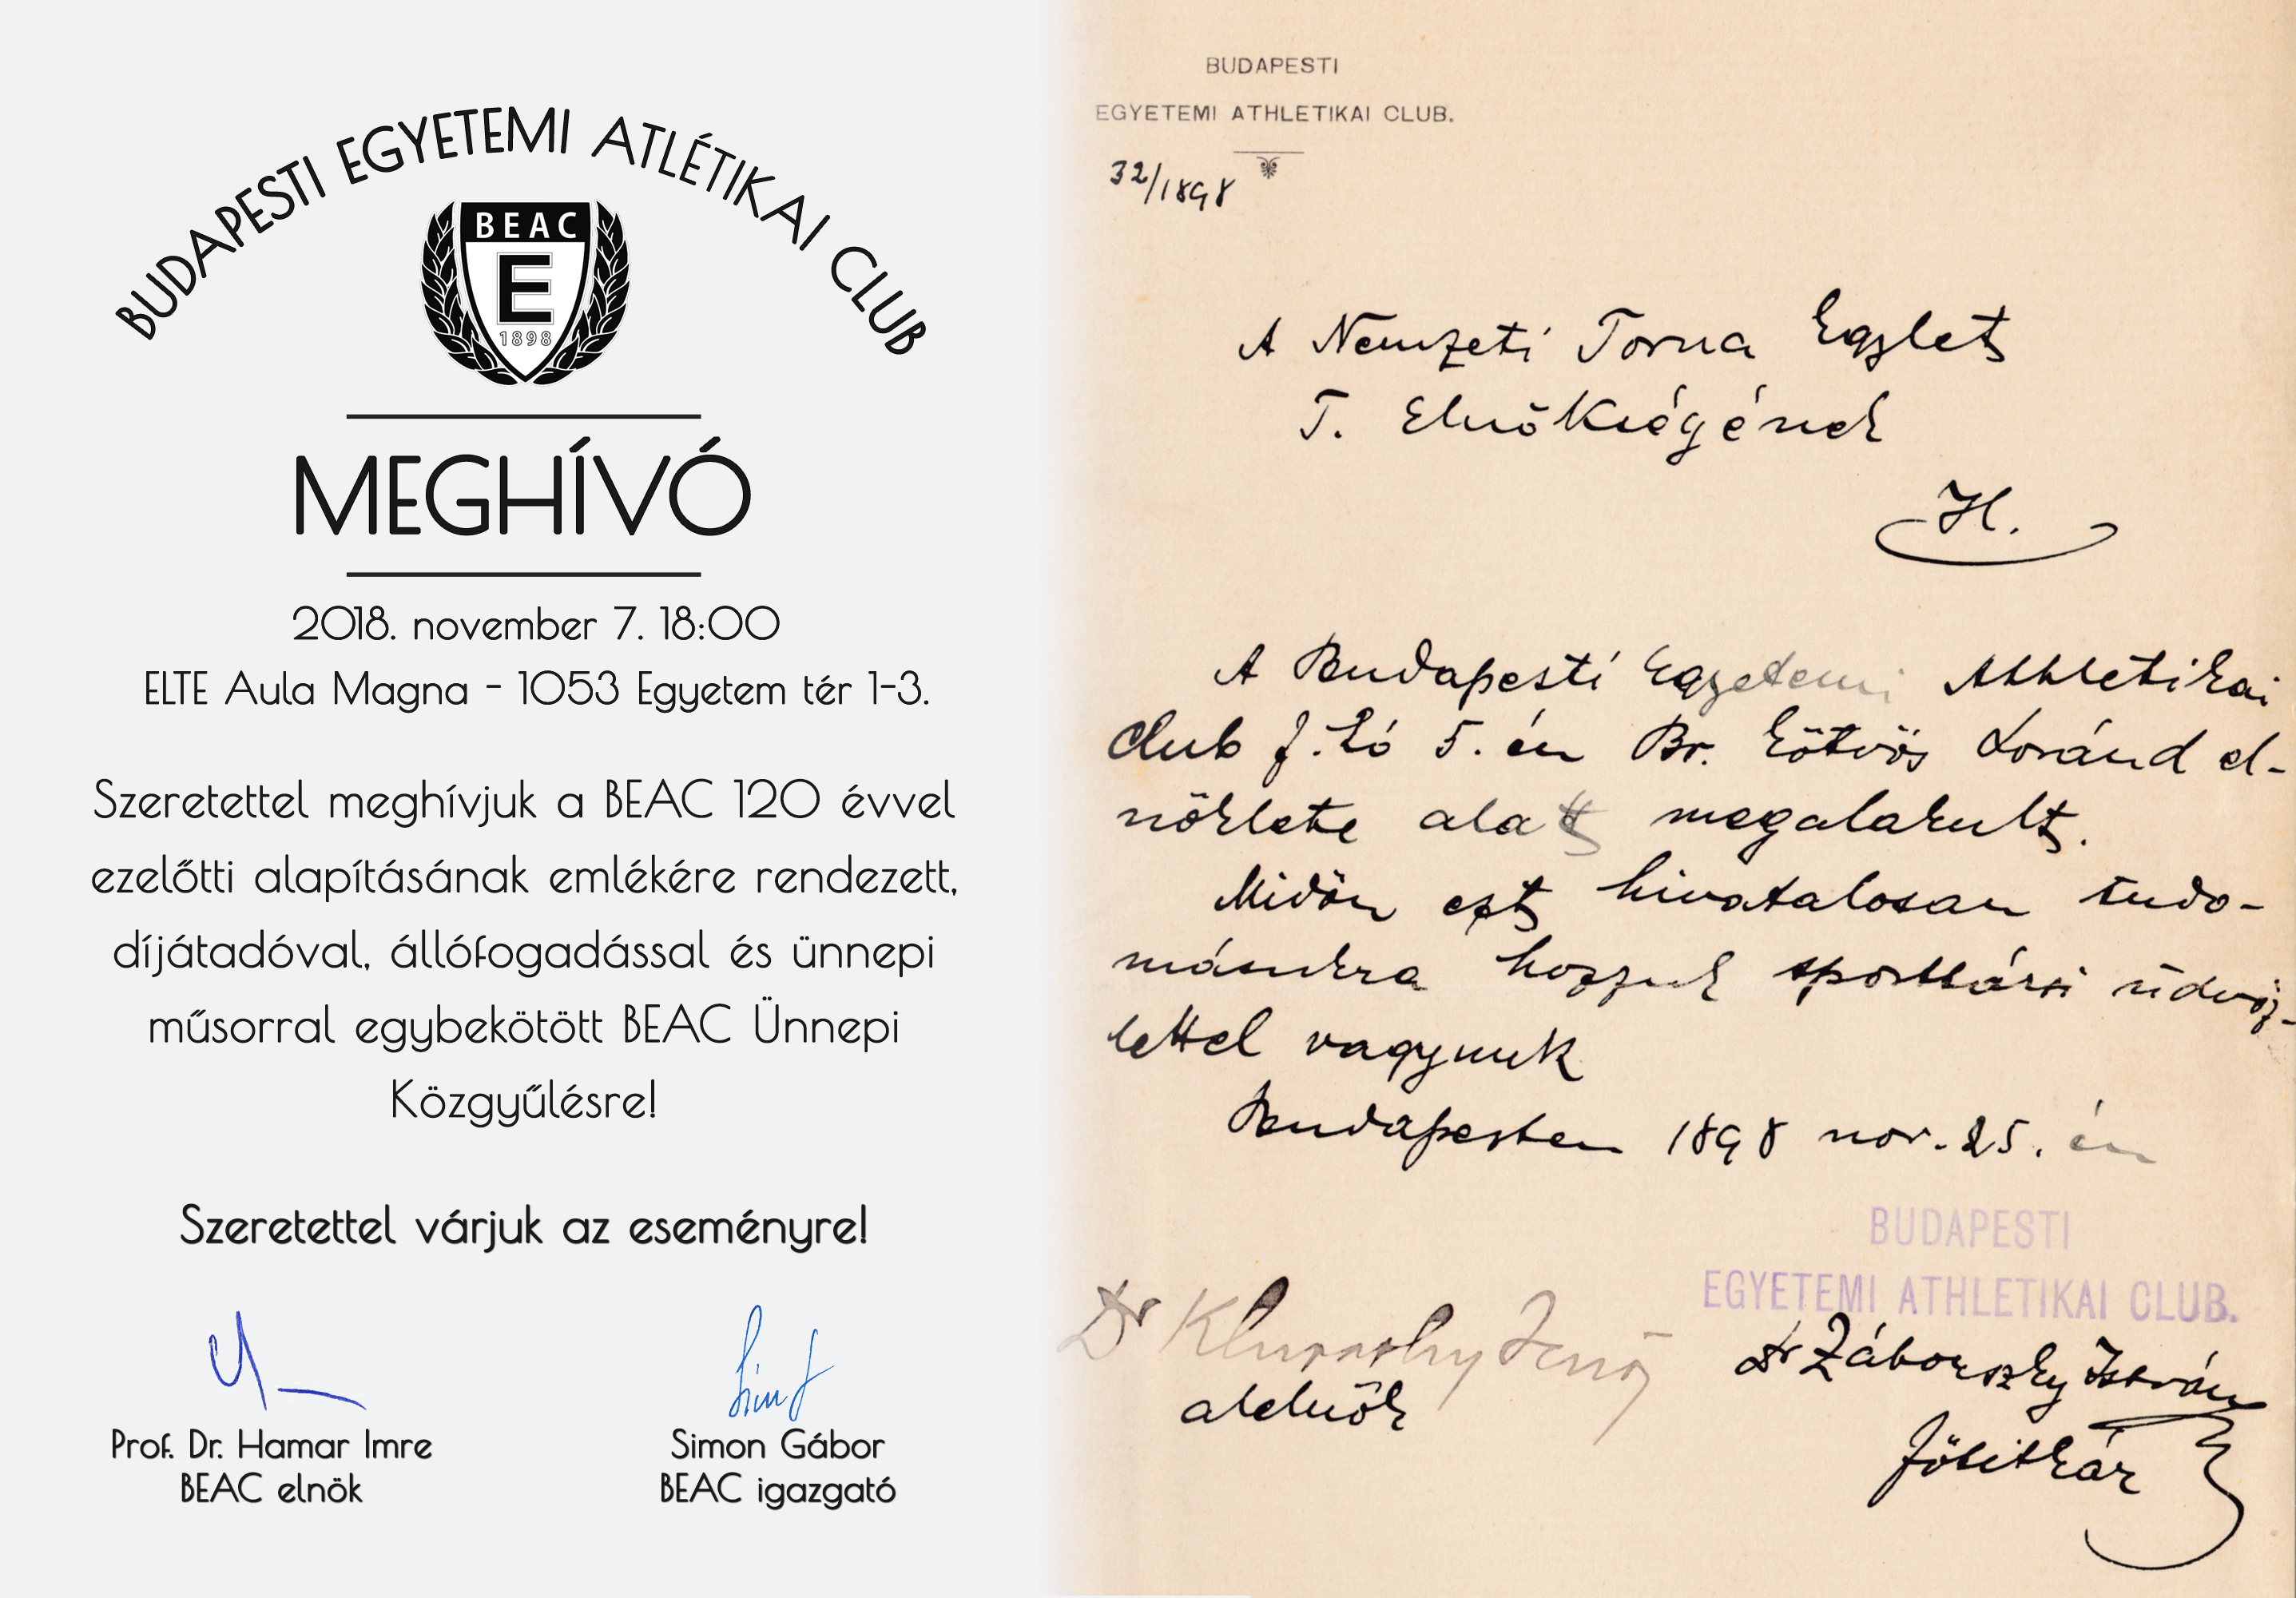 BUDAPESTI EGYETEMI ATLÉTIKAI CLUB
BEAC
E
1898
MEGHÍVÓ
2018. november 7. 18:00
ELTE Aula Magna - 1053 Egyetem tér 1-3.
Szeretettel meghívjuk a BEAC 120 évvel
ezelőtti alapításának emlékére rendezett,
díjátadóval, állófogadással és ünnepi
műsorral egybekötött BEAC Ünnepi
Közgyűlésre!
Szeretettel várjuk az eseményre!
Prof. Dr. Hamar Imre
BEAC elnök
Simon Gábor
BEAC igazgató
BUDAPESTI
EGYETEMI ATHLETIKAI CLUB.
32/1898
A Nemzeti Torna Egylet
T. Elnökségének
H.
A Budapesti Egyetemi Athletikai
Club f. hó 5. én Br. Eötvös Loránd el-
nöklete alatt megalakult.
Midőn ezt hivatalosan tudo-
másukra hozzuk sporttársi üdvöz-
lettel vagyunk
Budapesten 1898 nov. 25. én
BUDAPESTI
EGYETEMI ATHLETIKAI CLUB.
Dr Jenő
alelnök
Dr Záborszky István
főtitkár